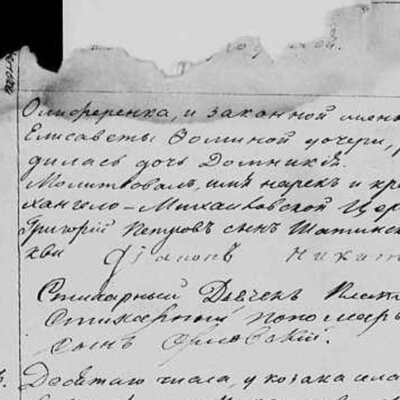 Олиференка, и законной жены
Елисаветы Фоминой дочери, р
дилась дочь Домникія.
Молитвовалъ, имя нарекъ и кре
хангело-Михаиловской Цер
Григорій Петровъ сынъ Шатинск
кви Діаконъ Никит
Стихарный Дьячекъ
Стихарный пономарь
сынъ Орловскій.
Десятаго числа, у козака